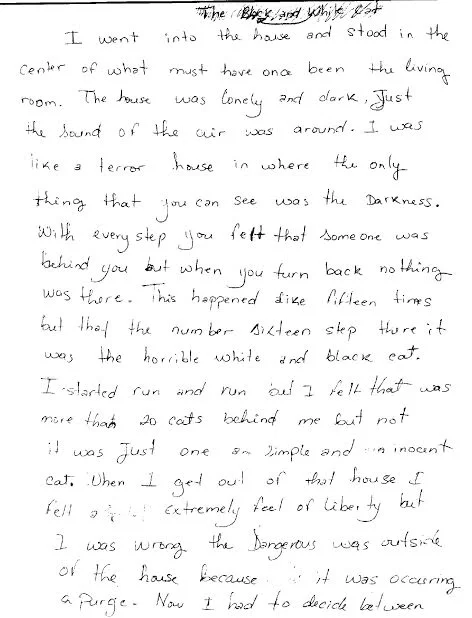 The Black and White Cat
I went into the house and stood in the
center of what must have once been the living
room. The house was lonely and dark, Just
the sound of the air was around. I was
like a terror house in where the only
thing that you can see was the Darkness.
With every step you felt that someone was
behind you but when you turn back nothing
was there. This happened like fifteen times
but that the number sixteen step there it
was the horrible white and black cat.
I started run and run but I felt that was
more than 20 cats behind me but not
it was Just one simple and inocent
cat. When I get out of that house I
fell extremely feel of liberty but
I was wrong the Dangerous was outside
of the house because it was occuring
a Purge. Now I had to decide between